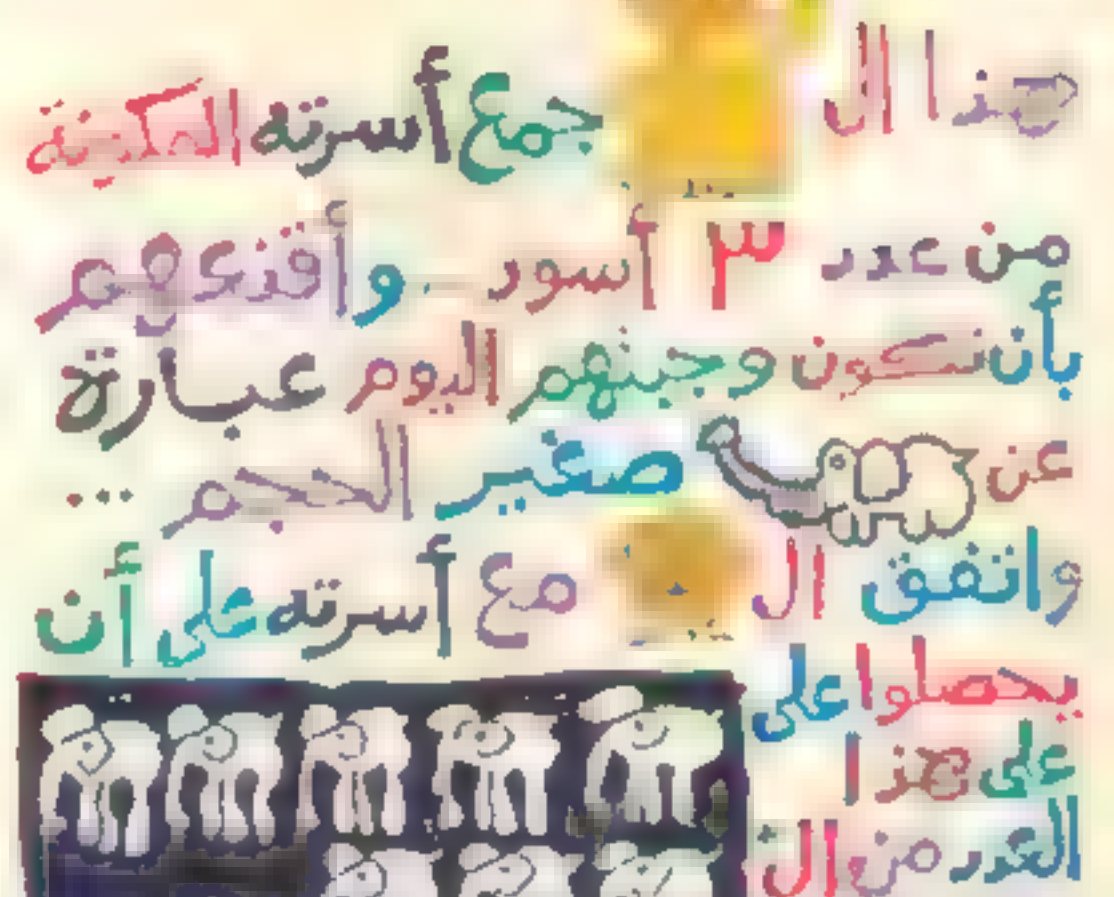 هذا ال جمع أسرته المكونة
من عدد ٣ أسود وأقنعهم
بأن تكون وجبتهم اليوم عبارة
عن صغير الحجم ...
واتفق ال مع أسرته على أن
يحصلوا على
على هذا
العدد من ال